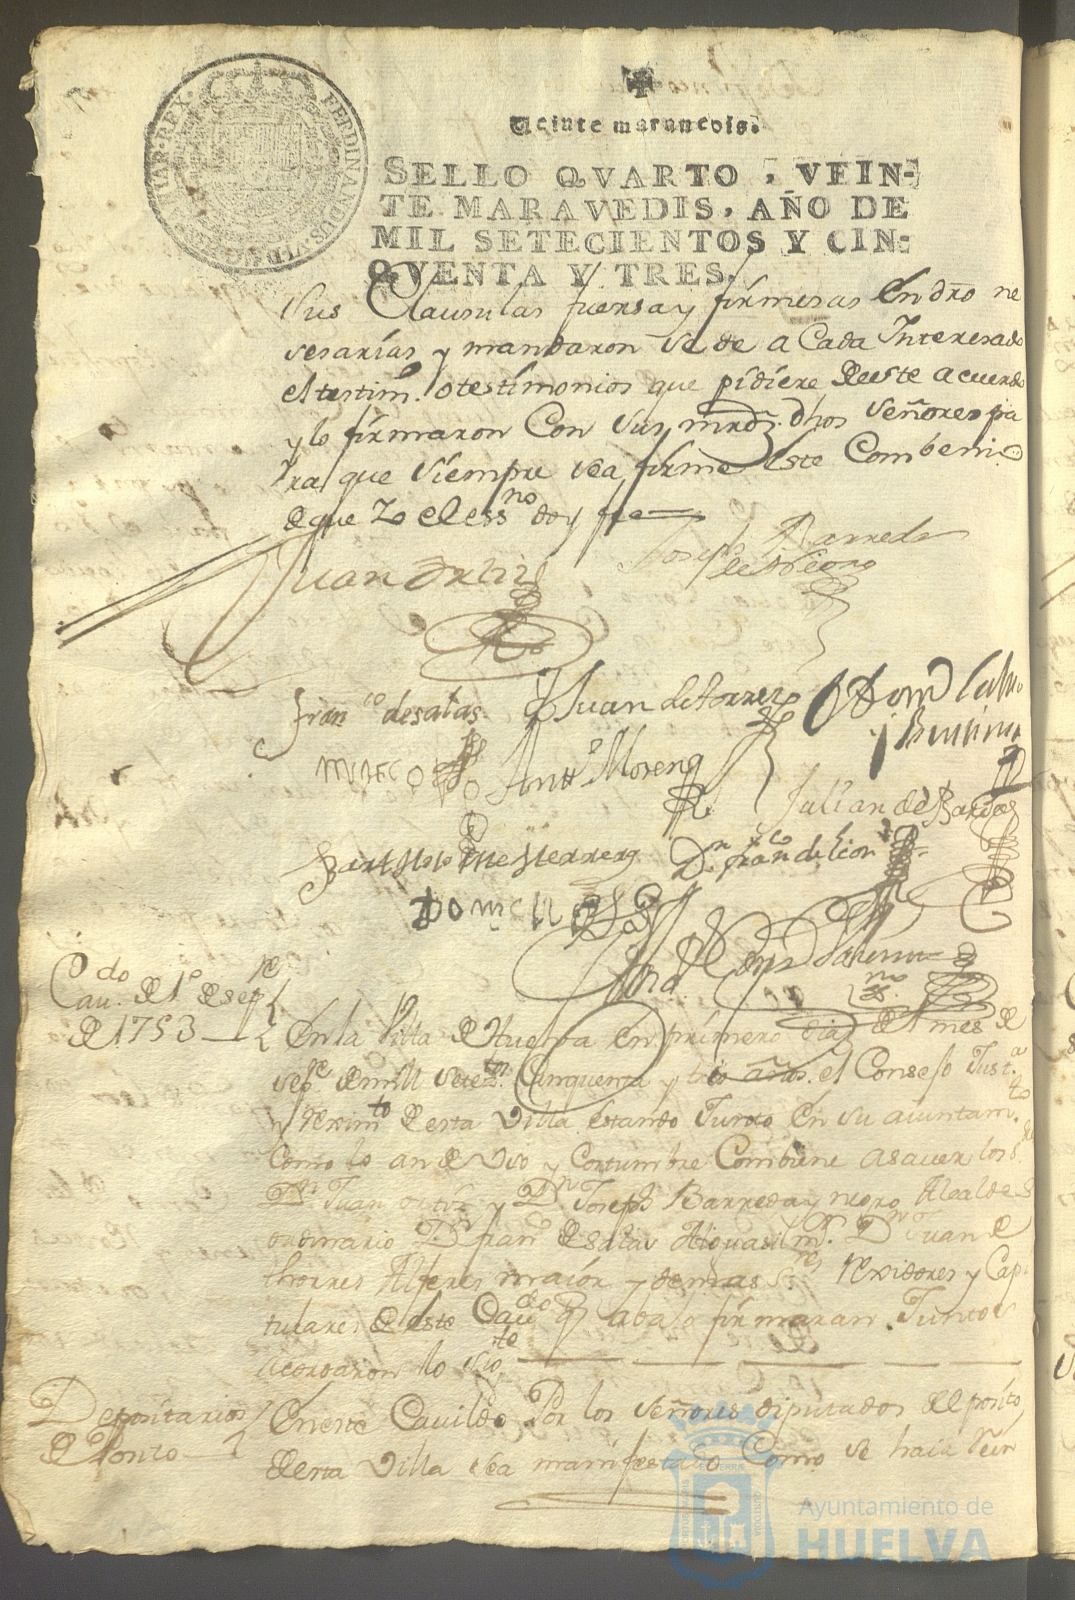 FERDINANDUS VI D G HISPANIAR REX
Veinte marauedis.
SELLO QVARTO, VEIN-
TE MARAVEDIS, AÑO DE
MIL SETECIENTOS Y CIN-
QVENTA Y TRES.
sus Clausulas fuersa y firmesas en dro ne
sesarias y mandaron se de a Cada Interesado
el testimo. o testimonios que pidiere de este acuerdo
y lo firmaron Con sus mrds. dhos Señores pa
ra que siempre sea firme este Combenio
de que Yo el essno doy fee
Juan Ortiz
Joseph Barreda
y Negro
Franco de salas
Juan de torres
Antto Moreno
Julian de
Bartholome Herrera
Dn franco de leon
Cavdo de 1º de sepre
de 1753
En la Villa de Huelva en primero dia del mes de
sepe de mill setezos Cinquenta y tres años. el Consejo Justa
y reximto de esta Villa estando Junto en su aiuntamto
Como lo an de uso y Costumbre Combiene a saver los Srs
Dn Juan ortiz y Dn Joseph Barreda y negro Alcaldes
ordinario Dn Franco de salas Alguasil mr. Dn Juan de
thorres Alferes maior y demas Sres rexidores y Cap
tulares de este Cavdo q abajo firmaran Juntos
acordaron lo sigto
Depositarios
de Ponto
En este Cavildo Por los señores diputados del posito
de esta Villa sea manifestado Como se haia
Ayuntamiento de
HUELVA